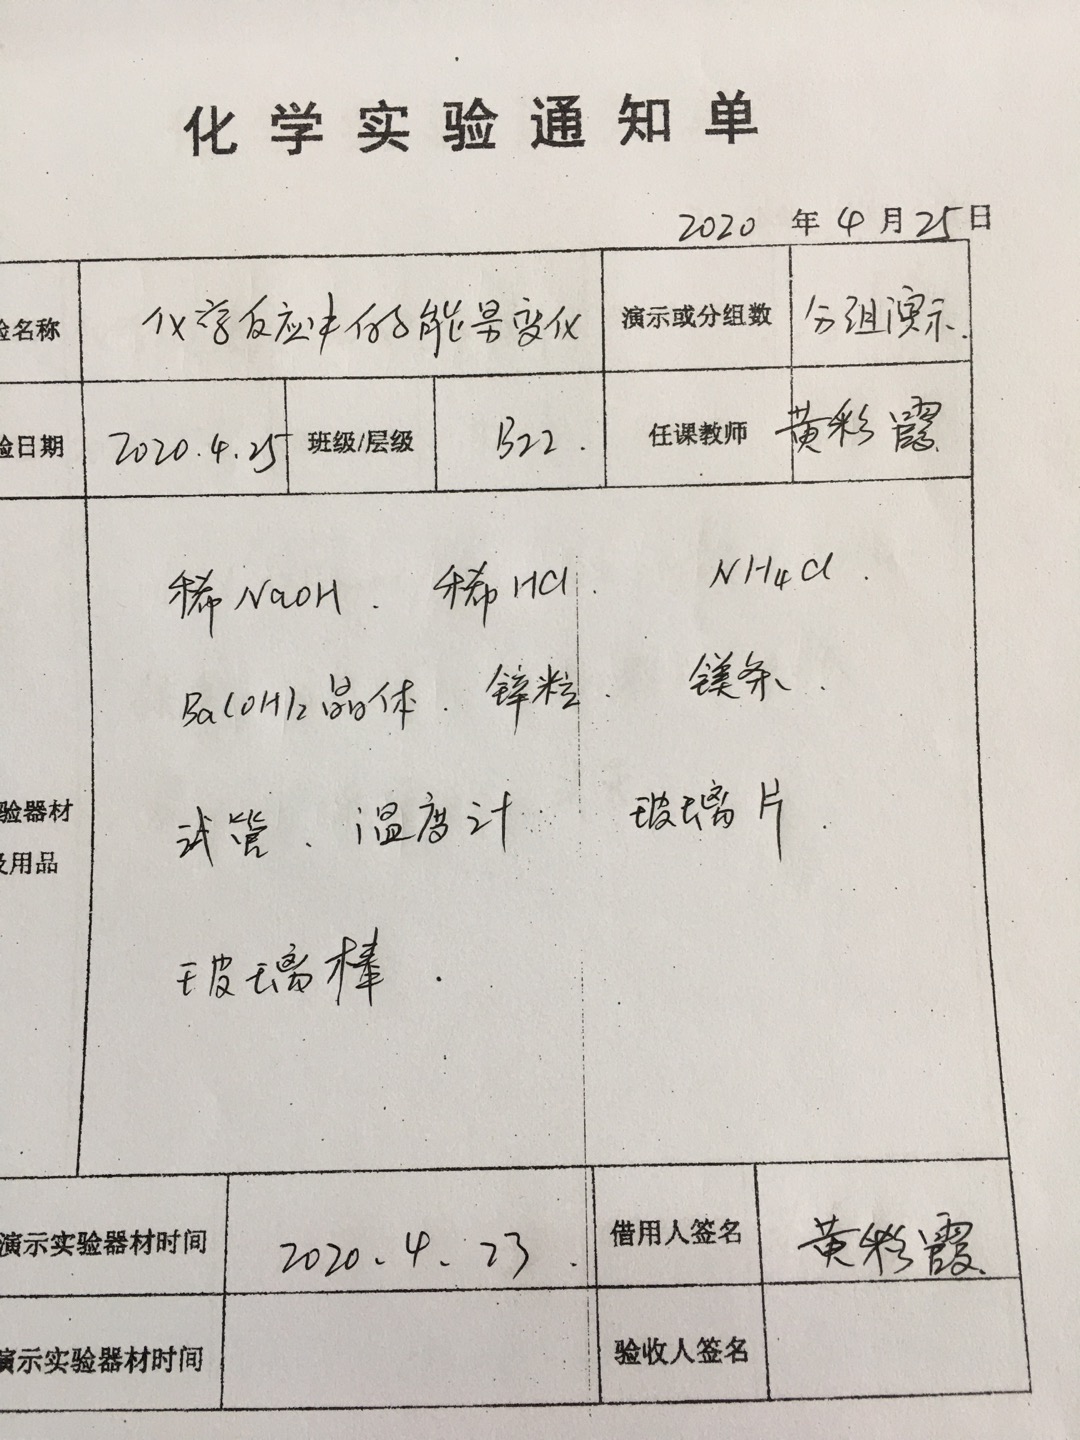 化学实验通知单
2020 年 4 月 25 日
验名称 化学反应中的能量变化 演示或分组数 分组演示.
验日期 2020.4.25 班级/层级 B22. 任课教师 黄彩霞
稀NaOH. 稀HCl. NH4Cl.
Ba(OH)2晶体. 锌粒. 镁条.
验器材
试管. 温度计 玻璃片.
及用品
玻璃棒.
演示实验器材时间 2020.4.23. 借用人签名 黄彩霞
演示实验器材时间 验收人签名